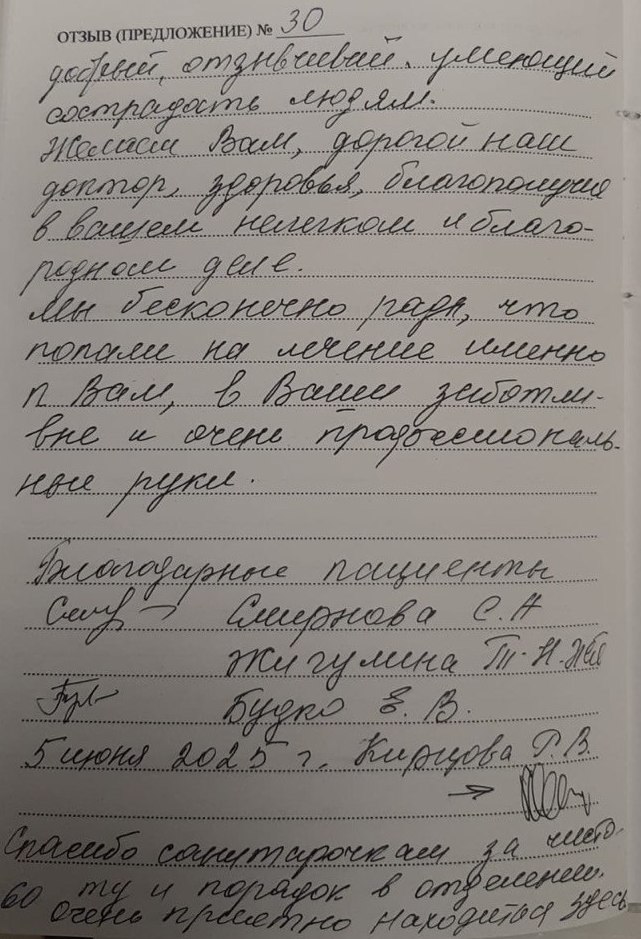 ОТЗЫВ (ПРЕДЛОЖЕНИЕ) № 30
добрый, отзывчивый, умеющий
сострадать людям.
Желаем Вам, дорогой наш
доктор, здоровья, благополучия
в вашем нелегком и благо-
родном деле.
Мы бесконечно рады, что
попали на лечение именно
к Вам, в Ваши заботли-
вые и очень профессиональ-
ные руки.
Благодарные пациенты
Смирнова С.А
Жигулина Т.Н.
Будко Е.В.
5 июня 2025 г. Кирцова Р.В.
Спасибо санитарочкам за чисто-
ту и порядок в отделении.
60 Очень приятно находиться здесь